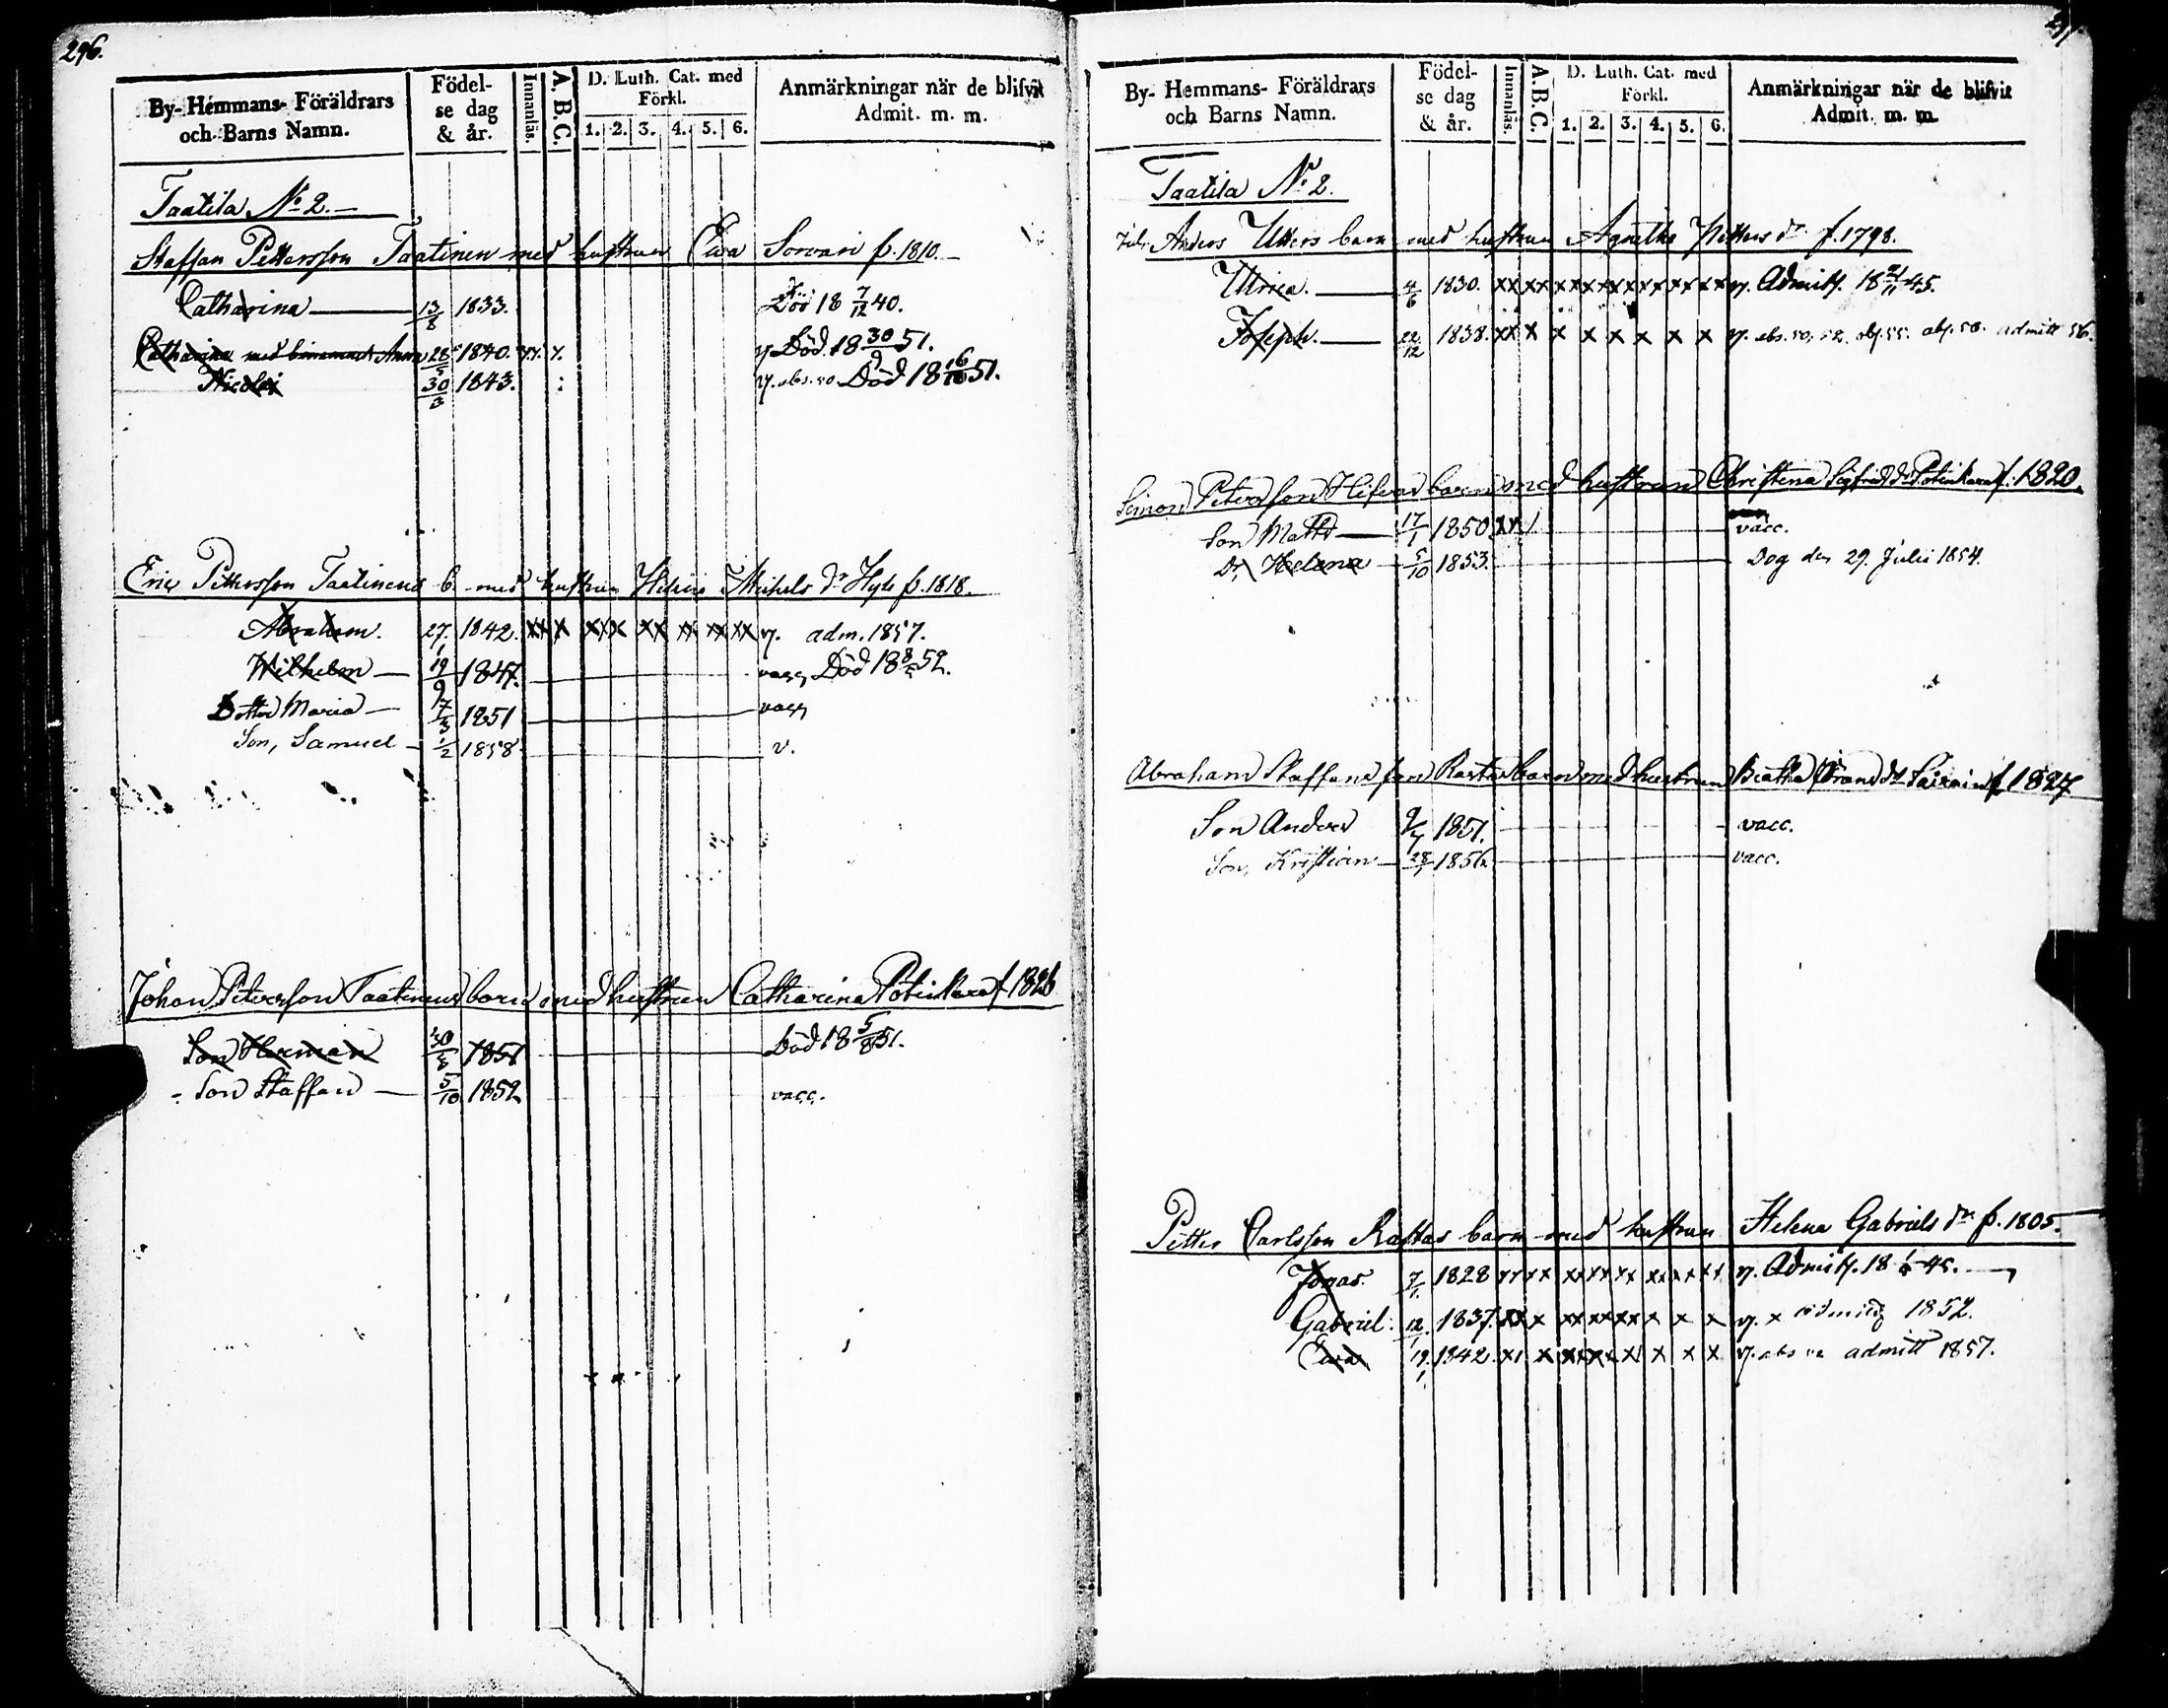 296.
By- Hemmans- Föräldrars och Barns Namn. Födelse dag & år. Innanläs. A. B. C. D. Luth. Cat. med Förkl. 1. 2. 3. 4. 5. 6. Anmärkningar när de blifvit Admit. m. m.
Taatila No 2.
Staffan Pettersson Taatinen med hustrun Ewa Sorvari f. 1810.
Catharina 13/8 1833. Död 18 7/12 40.
Catharina med binamnet Anna 28/5 1840. Död 18 30/9 51.
Nicolai 30/3 1843. v. abs. 50 Död 18 16/10 51.
Eric Pettersson Taatinens b. med hustrun Helena Michels dr Hyle f. 1818.
Abraham. 27/1 1842. xx x xxx xx xx xx xx v. adm. 1857.
Wilhelm 19/9 1847. vacc, Död 18 8/5 52.
Dotter Maria 17/3 1851 vacc
Son, Samuel 1/2 1858 v.
Johan Petersson Taatinens barn med hustrun Catharina Potinkara f 1826
Son Herman 30/3 1851 Död 18 5/8 51.
Son Staffan 5/10 1852 vacc.
By- Hemmans- Föräldrars och Barns Namn. Födelse dag & år. Innanläs. A. B. C. D. Luth. Cat. med Förkl. 1. 2. 3. 4. 5. 6. Anmärkningar när de blifvit Admit. m. m.
Taatila No 2.
Anders Utters barn med hustrun Agnetha Petters dr f. 1798.
Ulrica. 4/6 1830. xx xx xx xx xx xx xx xx v. Admitt. 18 45.
Joseph. 22/12 1838. xx x x x x x x x v. abs. 50, 52. abs. 55. admitt 56.
Simon Petersson barn med hustrun Christina Sigfrids dr Potinkara f. 1820.
Son Matts 17/1 1850 xx / vacc.
Dr, Helena 5/10 1853. Dog den 29. Julii 1854.
Abraham Staffansson Rastas barn med hustrun Beatha f 1827
Son Anders 9/7 1851. vacc.
Son, Kristian 28/7 1856 vacc.
Petter Carlsson Rastas barn med hustrun Helena Gabriels dr f. 1805.
Jonas. 7/1 1828 xx xx xx xx xx xx xx xx v. Admitt. 18 45.
Gabriel. 12/1 1837. xx x xx xx xx x x x v. x admitt 1852.
Ewa 19/1 1842. xx x xx xx xx x x x v. abs admitt 1857.